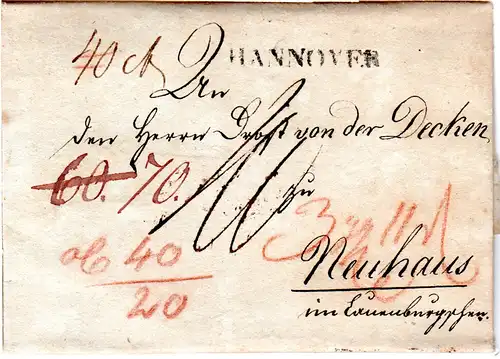 40 ch HANNOVER
An
den Herrn Drost von der Decken
60. 70. zu
ab 40
20
Neuhaus
im Lauenburgschen.